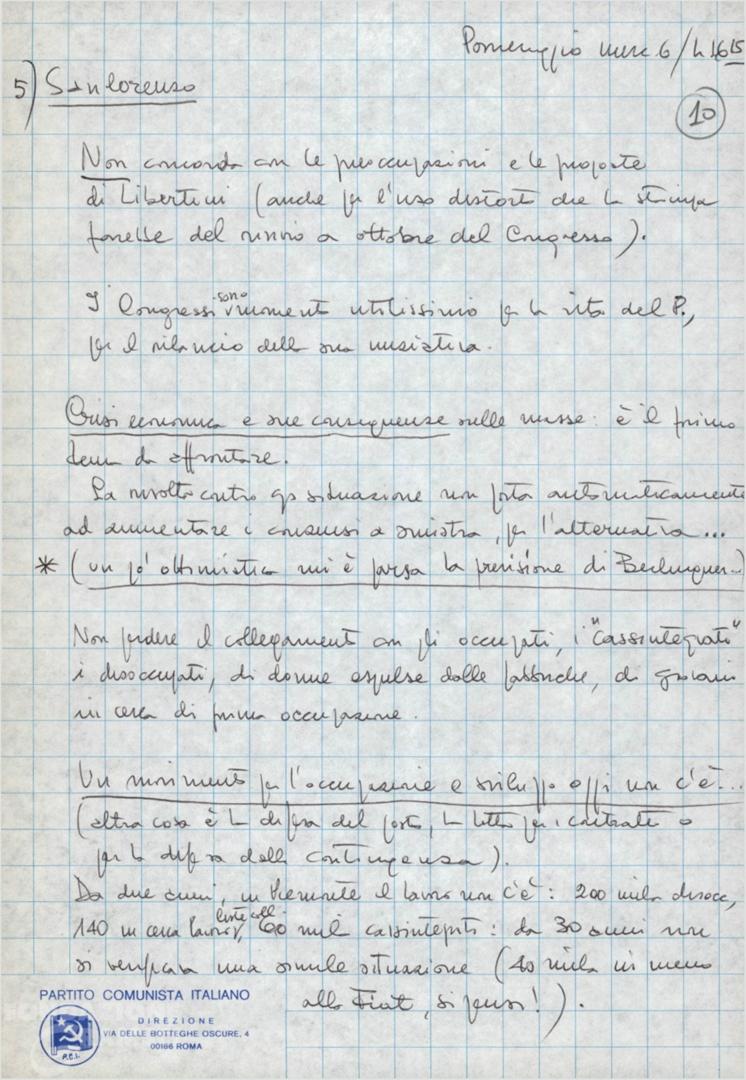 Pomeriggio merc. 6/h 16 15
5) Sanlorenzo
10
Non concorda con le preoccupazioni e le proposte
di Libertini (anche per l'uso distorto che la stampa
farebbe del rinvio a ottobre del Congresso).
I Congressi sono momento utilissimo per la vita del P.,
per il rilancio della sua iniziativa.
Crisi economica e sue conseguenze sulle masse: è il primo
tema da affrontare.
La rivolta contro qs situazione non porta automaticamente
ad aumentare i consensi a sinistra, per l'alternativa...
* (un po' ottimistica mi è parsa la previsione di Berlinguer..)
Non perdere il collegamento con gli occupati, i "cassintegrati"
i disoccupati, di donne espulse dalle fabbriche, di giovani
in cerca di prima occupazione.
Un movimento per l'occupazione e sviluppo oggi non c'è...
(altra cosa è la difesa del posto, la lotta per i contratti o
per la difesa della contingenza).
Da due anni, in Piemonte il lavoro non c'è: 200 mila disocc,
140 in cerca lavoro, liste coll. 60 mila cassintegrati: da 30 anni non
si verificava una simile situazione (40 mila in meno
alla Fiat, si pensi!).
PARTITO COMUNISTA ITALIANO
DIREZIONE
VIA DELLE BOTTEGHE OSCURE, 4
00186 ROMA
P.C.I.